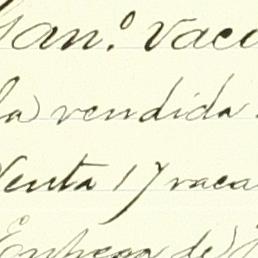 Gan.º vacu
la vendida
Venta 17 vaca
Entrega de